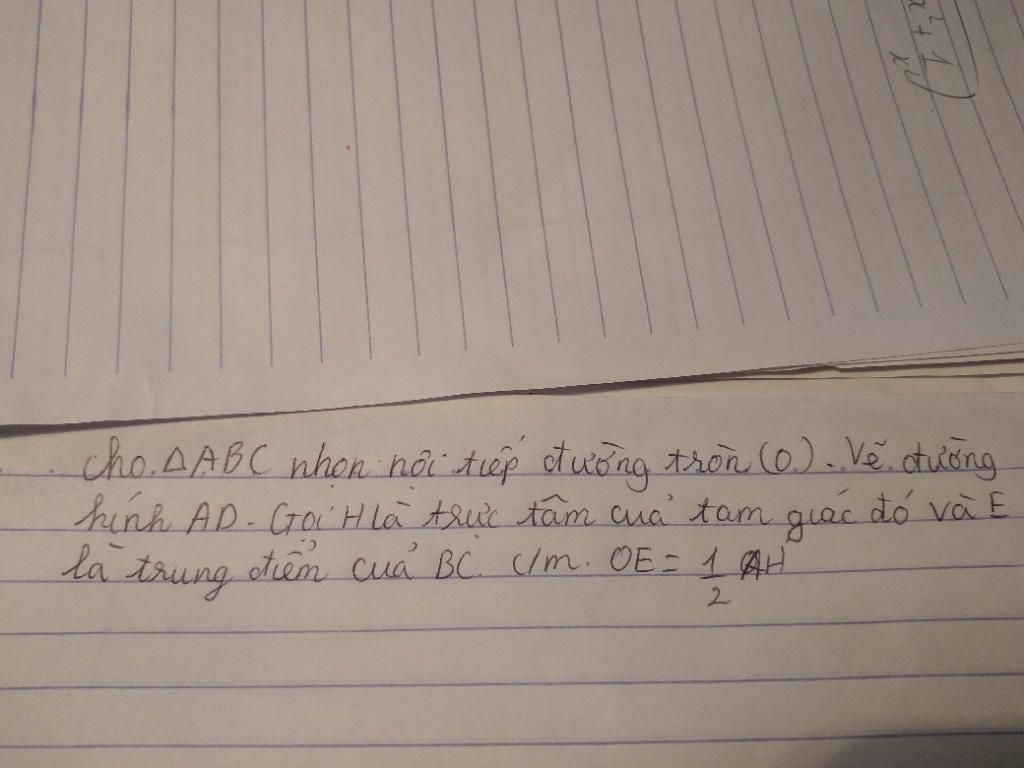 x² + 1/x²)
Cho ΔABC nhọn nội tiếp đường tròn (O). Vẽ đường
kính AD. Gọi H là trực tâm của tam giác đó và E
là trung điểm của BC. C/m. OE = 1/2 AH